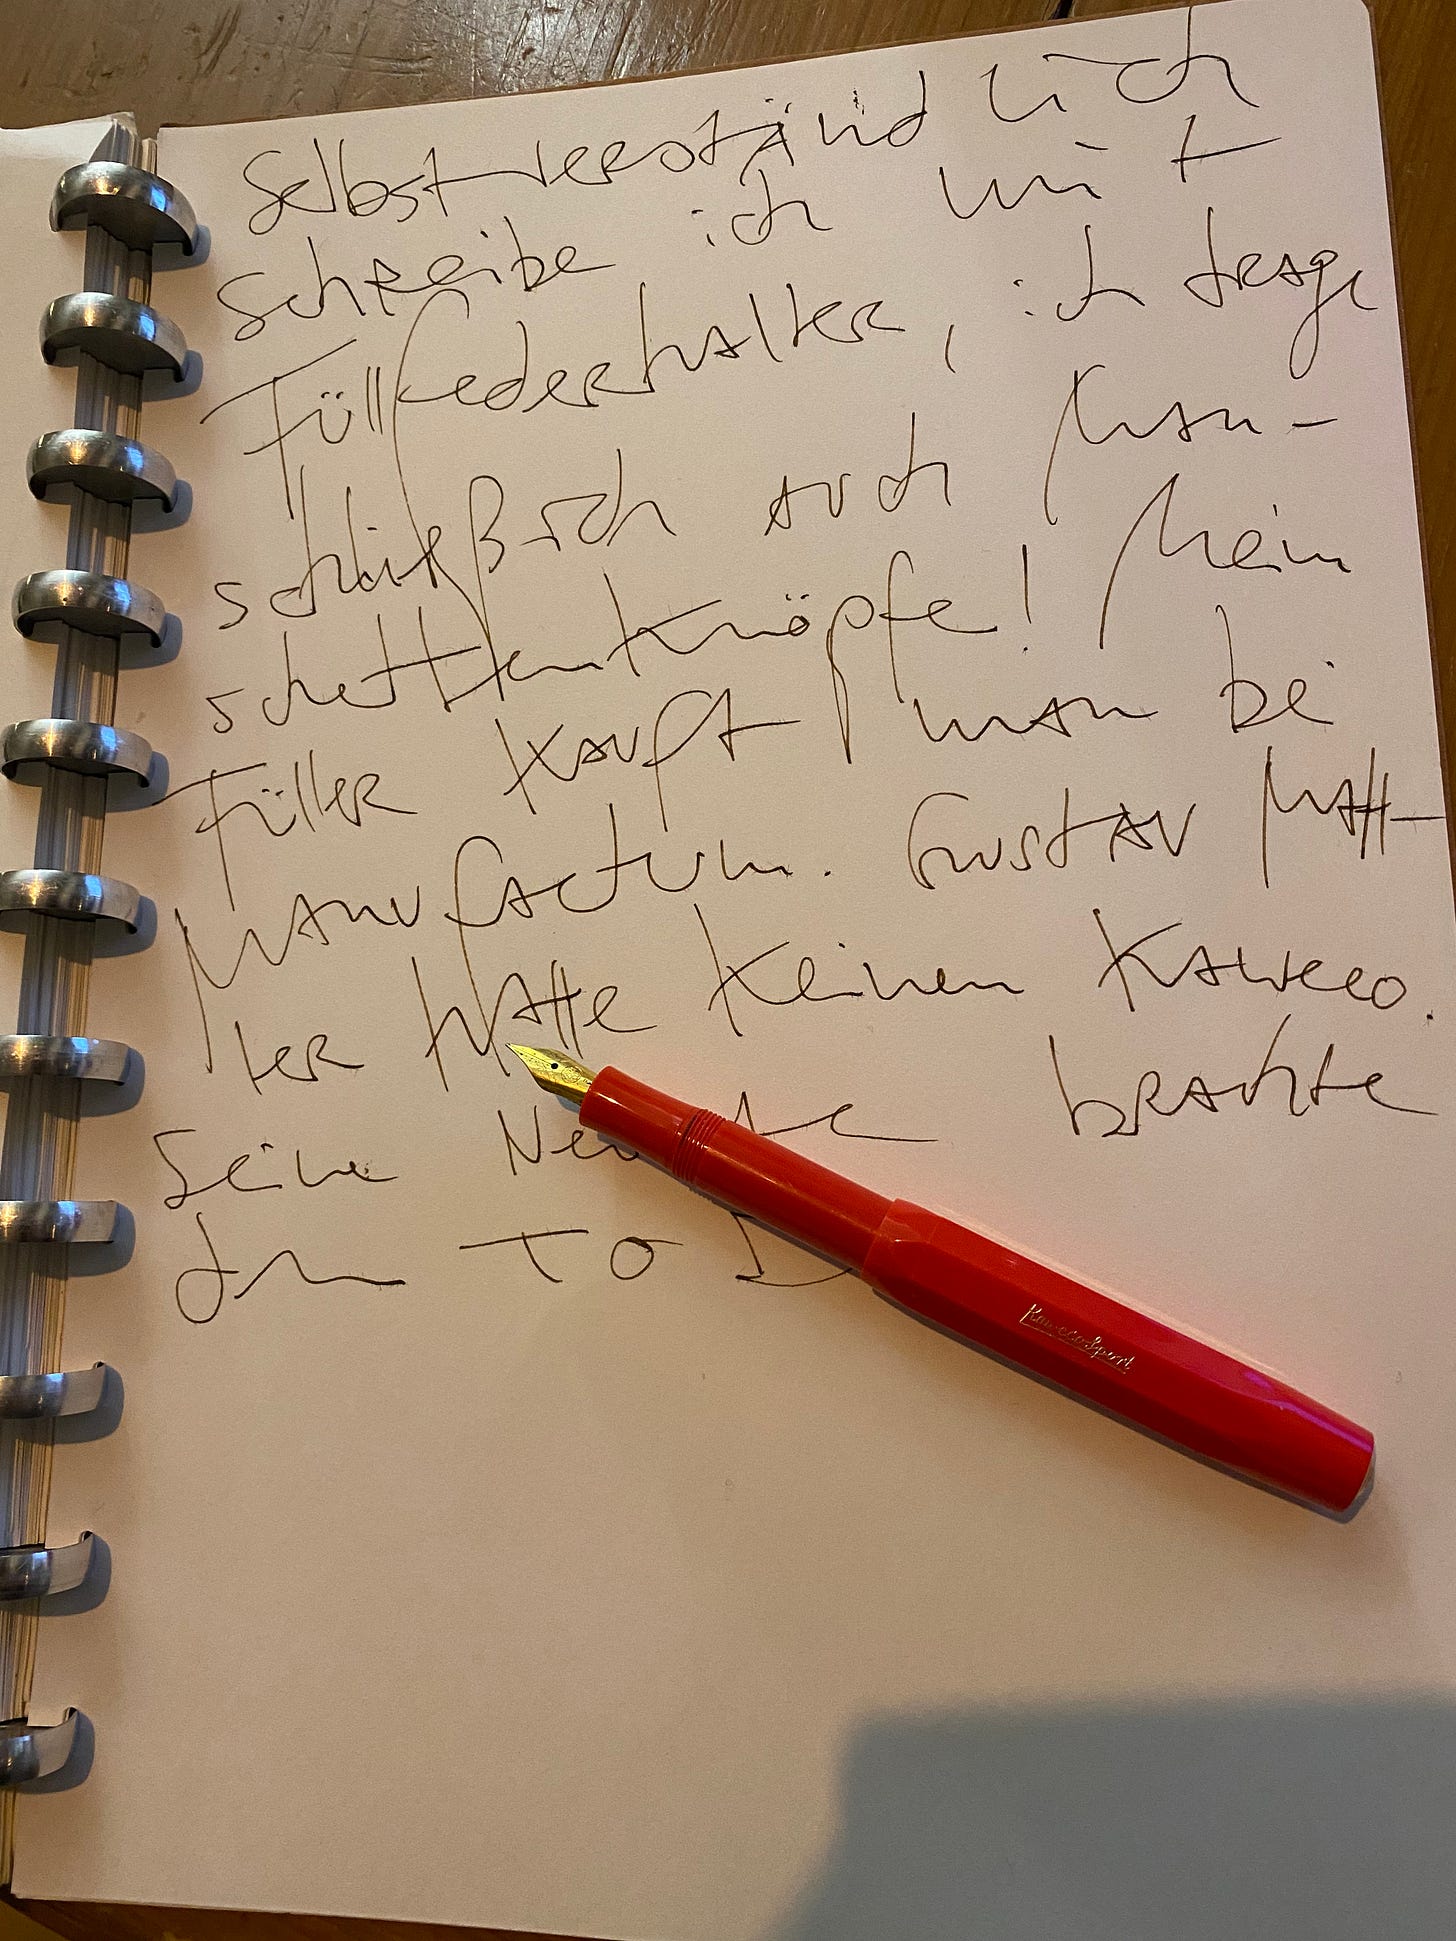 Selbstverständlich
schreibe ich mit
Füllfederhalter, ich trage
schließlich auch Man-
schettenknöpfe! Mein
Füller kauft man bei
Manufactum. Gustav Mah-
ler hatte keinen Kaweco.
Seine brachte
ihm
Kaweco Sport